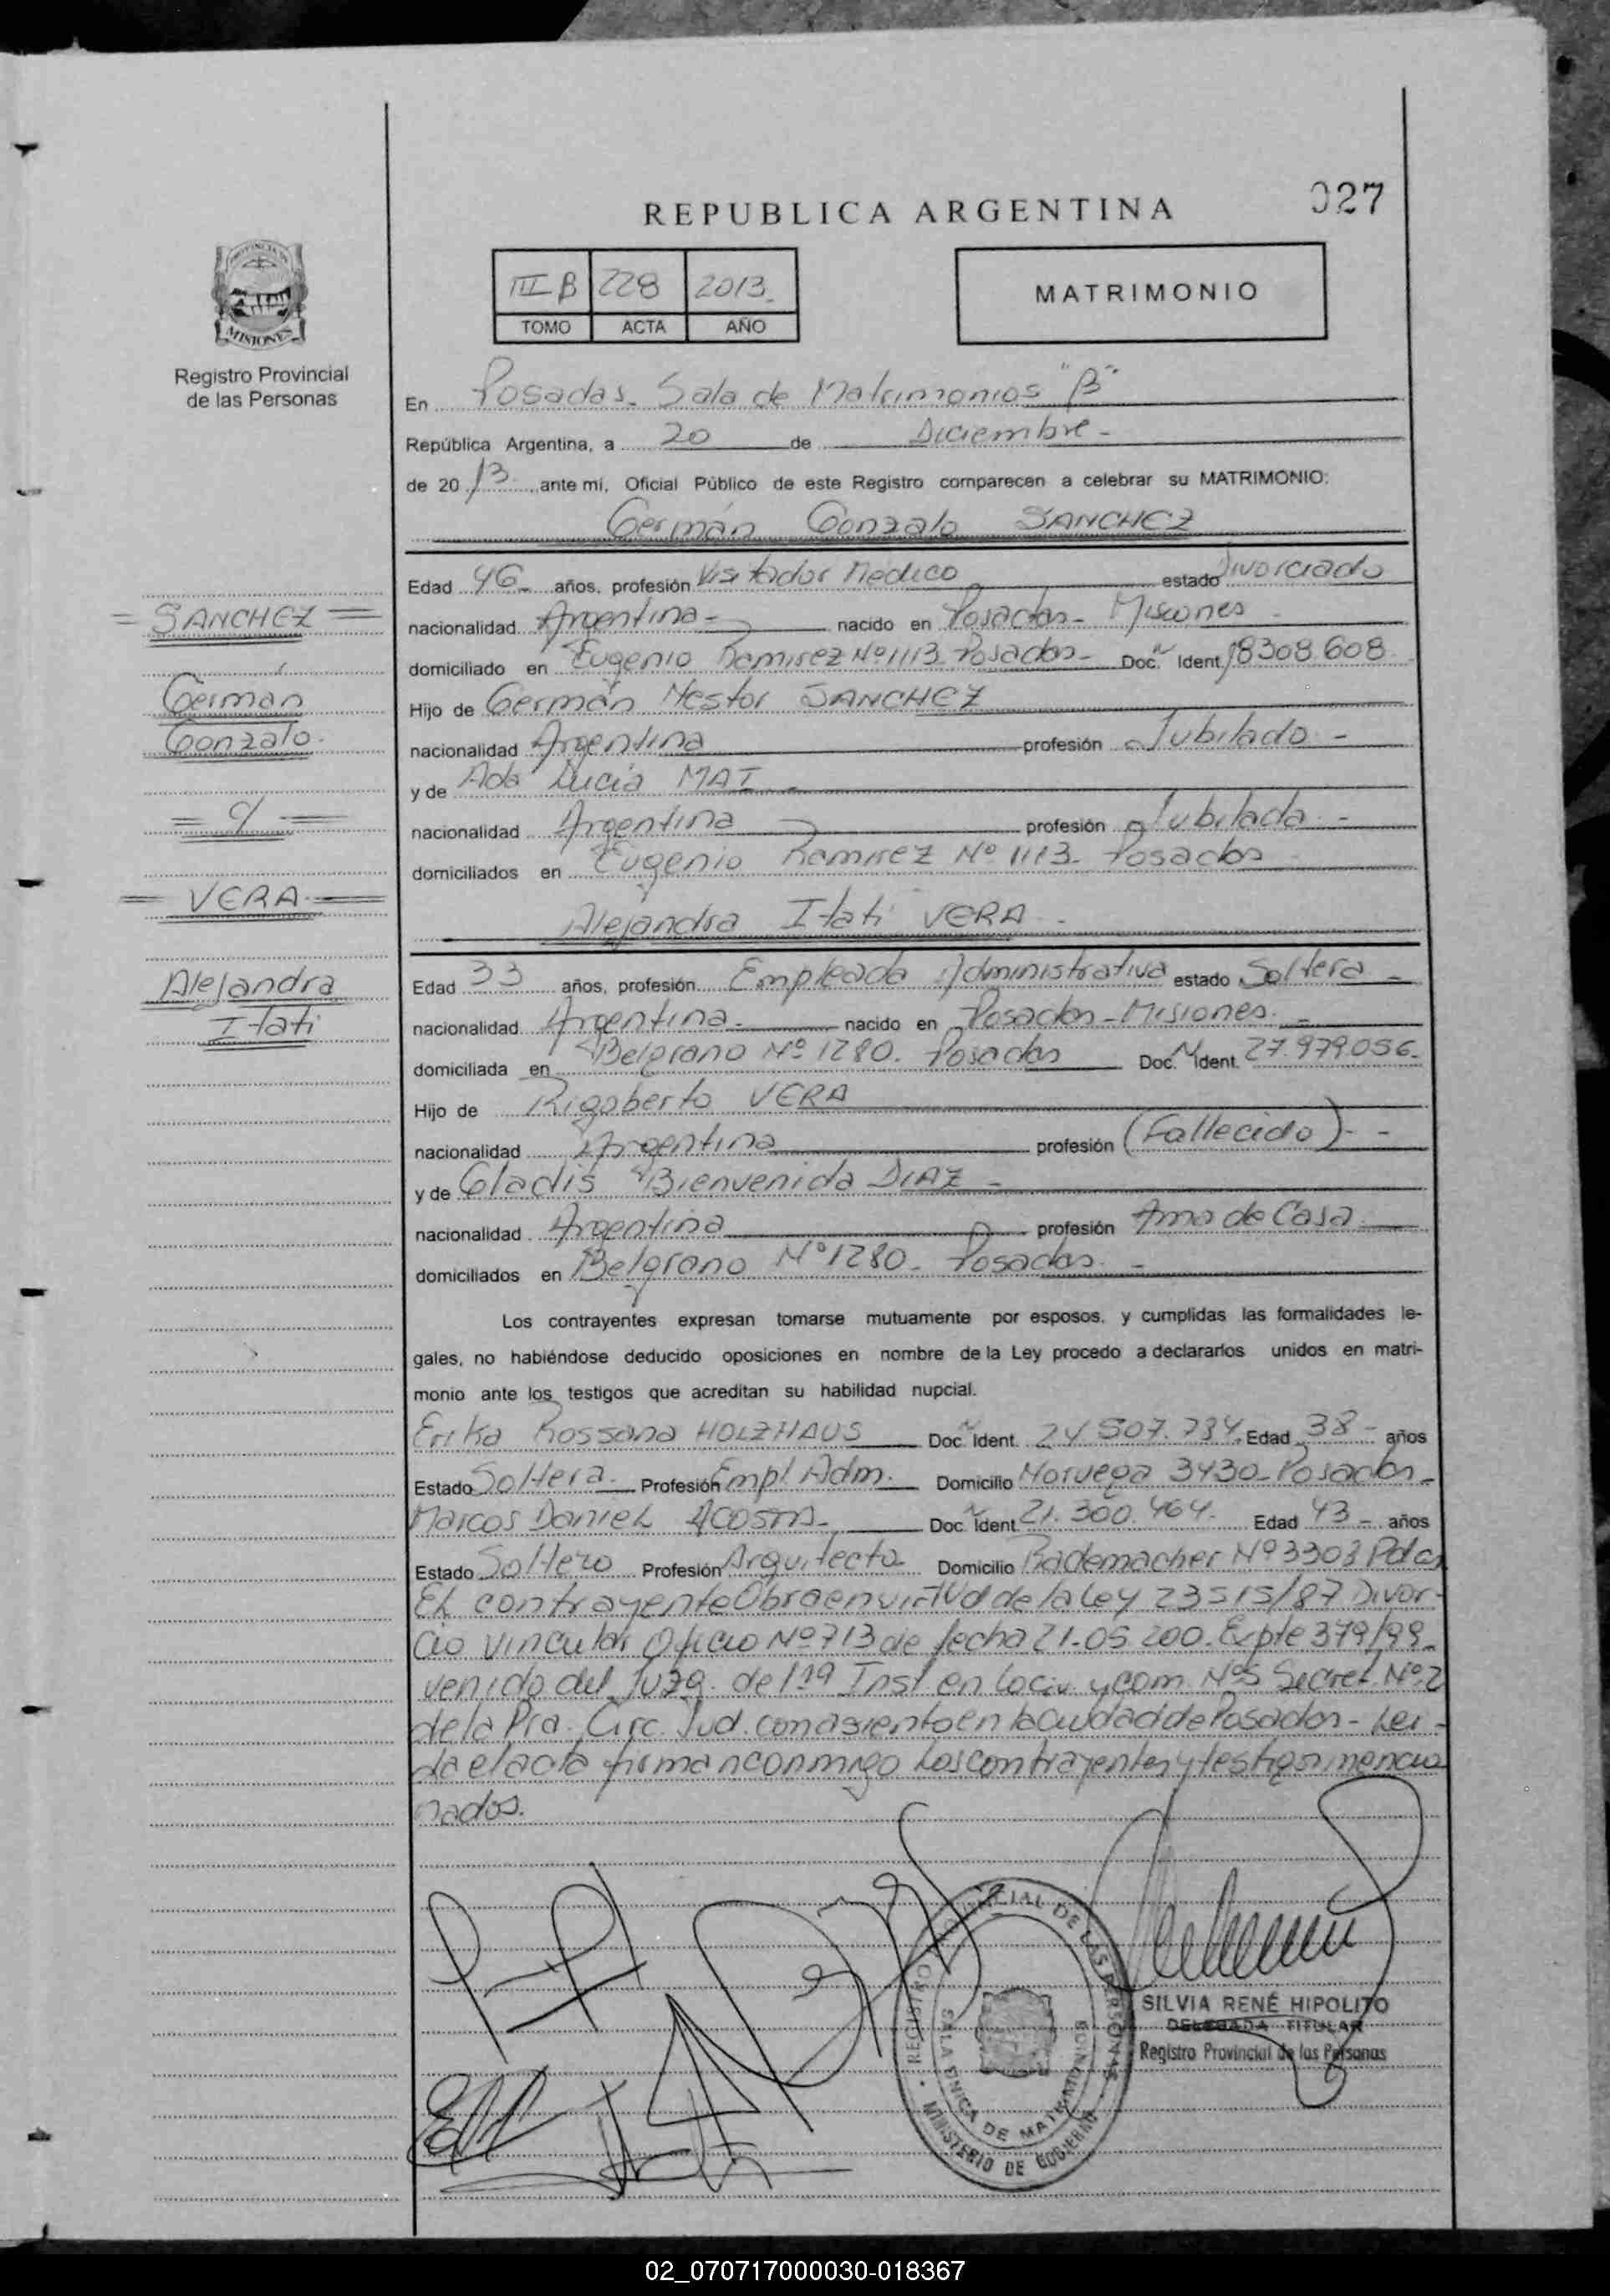 027
REPUBLICA ARGENTINA
PROVINCIA DE
MISIONES
III B 228 2013
TOMO ACTA AÑO
MATRIMONIO
Registro Provincial
de las Personas
En Posadas- Sala de Matrimonios "B"
República Argentina, a 20 de Diciembre -
de 20 13 ante mí, Oficial Público de este Registro comparecen a celebrar su MATRIMONIO:
Germán Gonzalo SANCHEZ
Edad 46 años, profesión Visitador Medico estado Divorciado
= SANCHEZ =
nacionalidad Argentina- nacido en Posadas- Misiones -
domiciliado en Eugenio Ramirez Nº 1113 Posadas- Doc. N Ident. 18308.608
Germán
Hijo de Germán Nestor SANCHEZ
Gonzalo.
nacionalidad Argentina profesión Jubilado -
y de Ada Lucia MAI -
= c/ =
nacionalidad Argentina profesión Jubilada -
domiciliados en Eugenio Ramirez Nº 1113- Posadas
= VERA =
Alejandra Itati VERA -
Alejandra
Edad 33 años, profesión Empleada Administrativa estado Soltera -
Itati
nacionalidad Argentina- nacido en Posadas-Misiones. -
domiciliada en Belgrano Nº 1280. Posadas Doc. N Ident. 27.979.056.
Hijo de Rigoberto VERA
nacionalidad Argentina profesión (Fallecido) - -
y de Gladis Bienvenida DIAZ -
nacionalidad Argentina profesión Ama de Casa.
domiciliados en Belgrano Nº 1280- Posadas. -
Los contrayentes expresan tomarse mutuamente por esposos, y cumplidas las formalidades le-
gales, no habiéndose deducido oposiciones en nombre de la Ley procedo a declararlos unidos en matri-
monio ante los testigos que acreditan su habilidad nupcial.
Erika Rossana HOLZHAUS Doc. N Ident. 24.507.734. Edad 38 - años
Estado Soltera. Profesión Empl. Adm. Domicilio Noruega 3430- Posadas -
Marcos Daniel ACOSTA- Doc. N Ident. 21.300.464. Edad 43 - años
Estado Soltero Profesión Arquitecto Domicilio Rademacher Nº 3303 Pdas
El contrayente Obra en virtud de la Ley 23515/87 Divor-
cio vincular Oficio Nº 713 de fecha 21-05.200. Expte 379/99-
venido del Juzg. de 1ra Inst. en lo civ. y com. Nº5 Secret. Nº.2
de la Pra. Circ. Jud. con asiento en la Ciudad de Posadas - Lei-
da el acta firman conmigo Los contrayentes y testigos mencio
nados.
REGISTRO PROVINCIAL DE LAS PERSONAS
SALA UNICA DE MATRIMONIOS
MINISTERIO DE GOBIERNO
SILVIA RENÉ HIPOLITO
DELEGADA TITULAR
Registro Provincial de las Personas
02_070717000030-018367